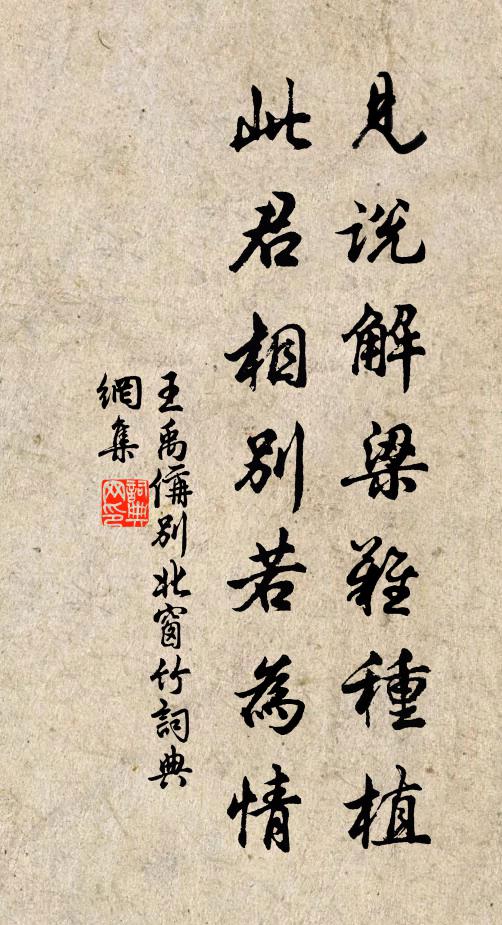 見說解梁難種植
此君相別若為情
王禹偁別北窗竹詞典
網集
詞典
网印